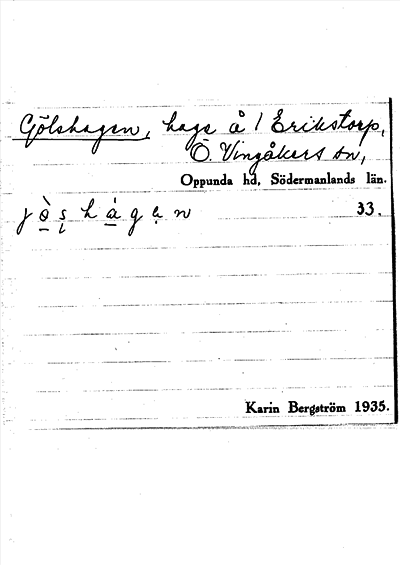 Gölshagen, hage å 1 Erikstorp,
Ö. Vingåkers sn,
Oppunda hd, Södermanlands län.
33.
Karin Bergström 1935.